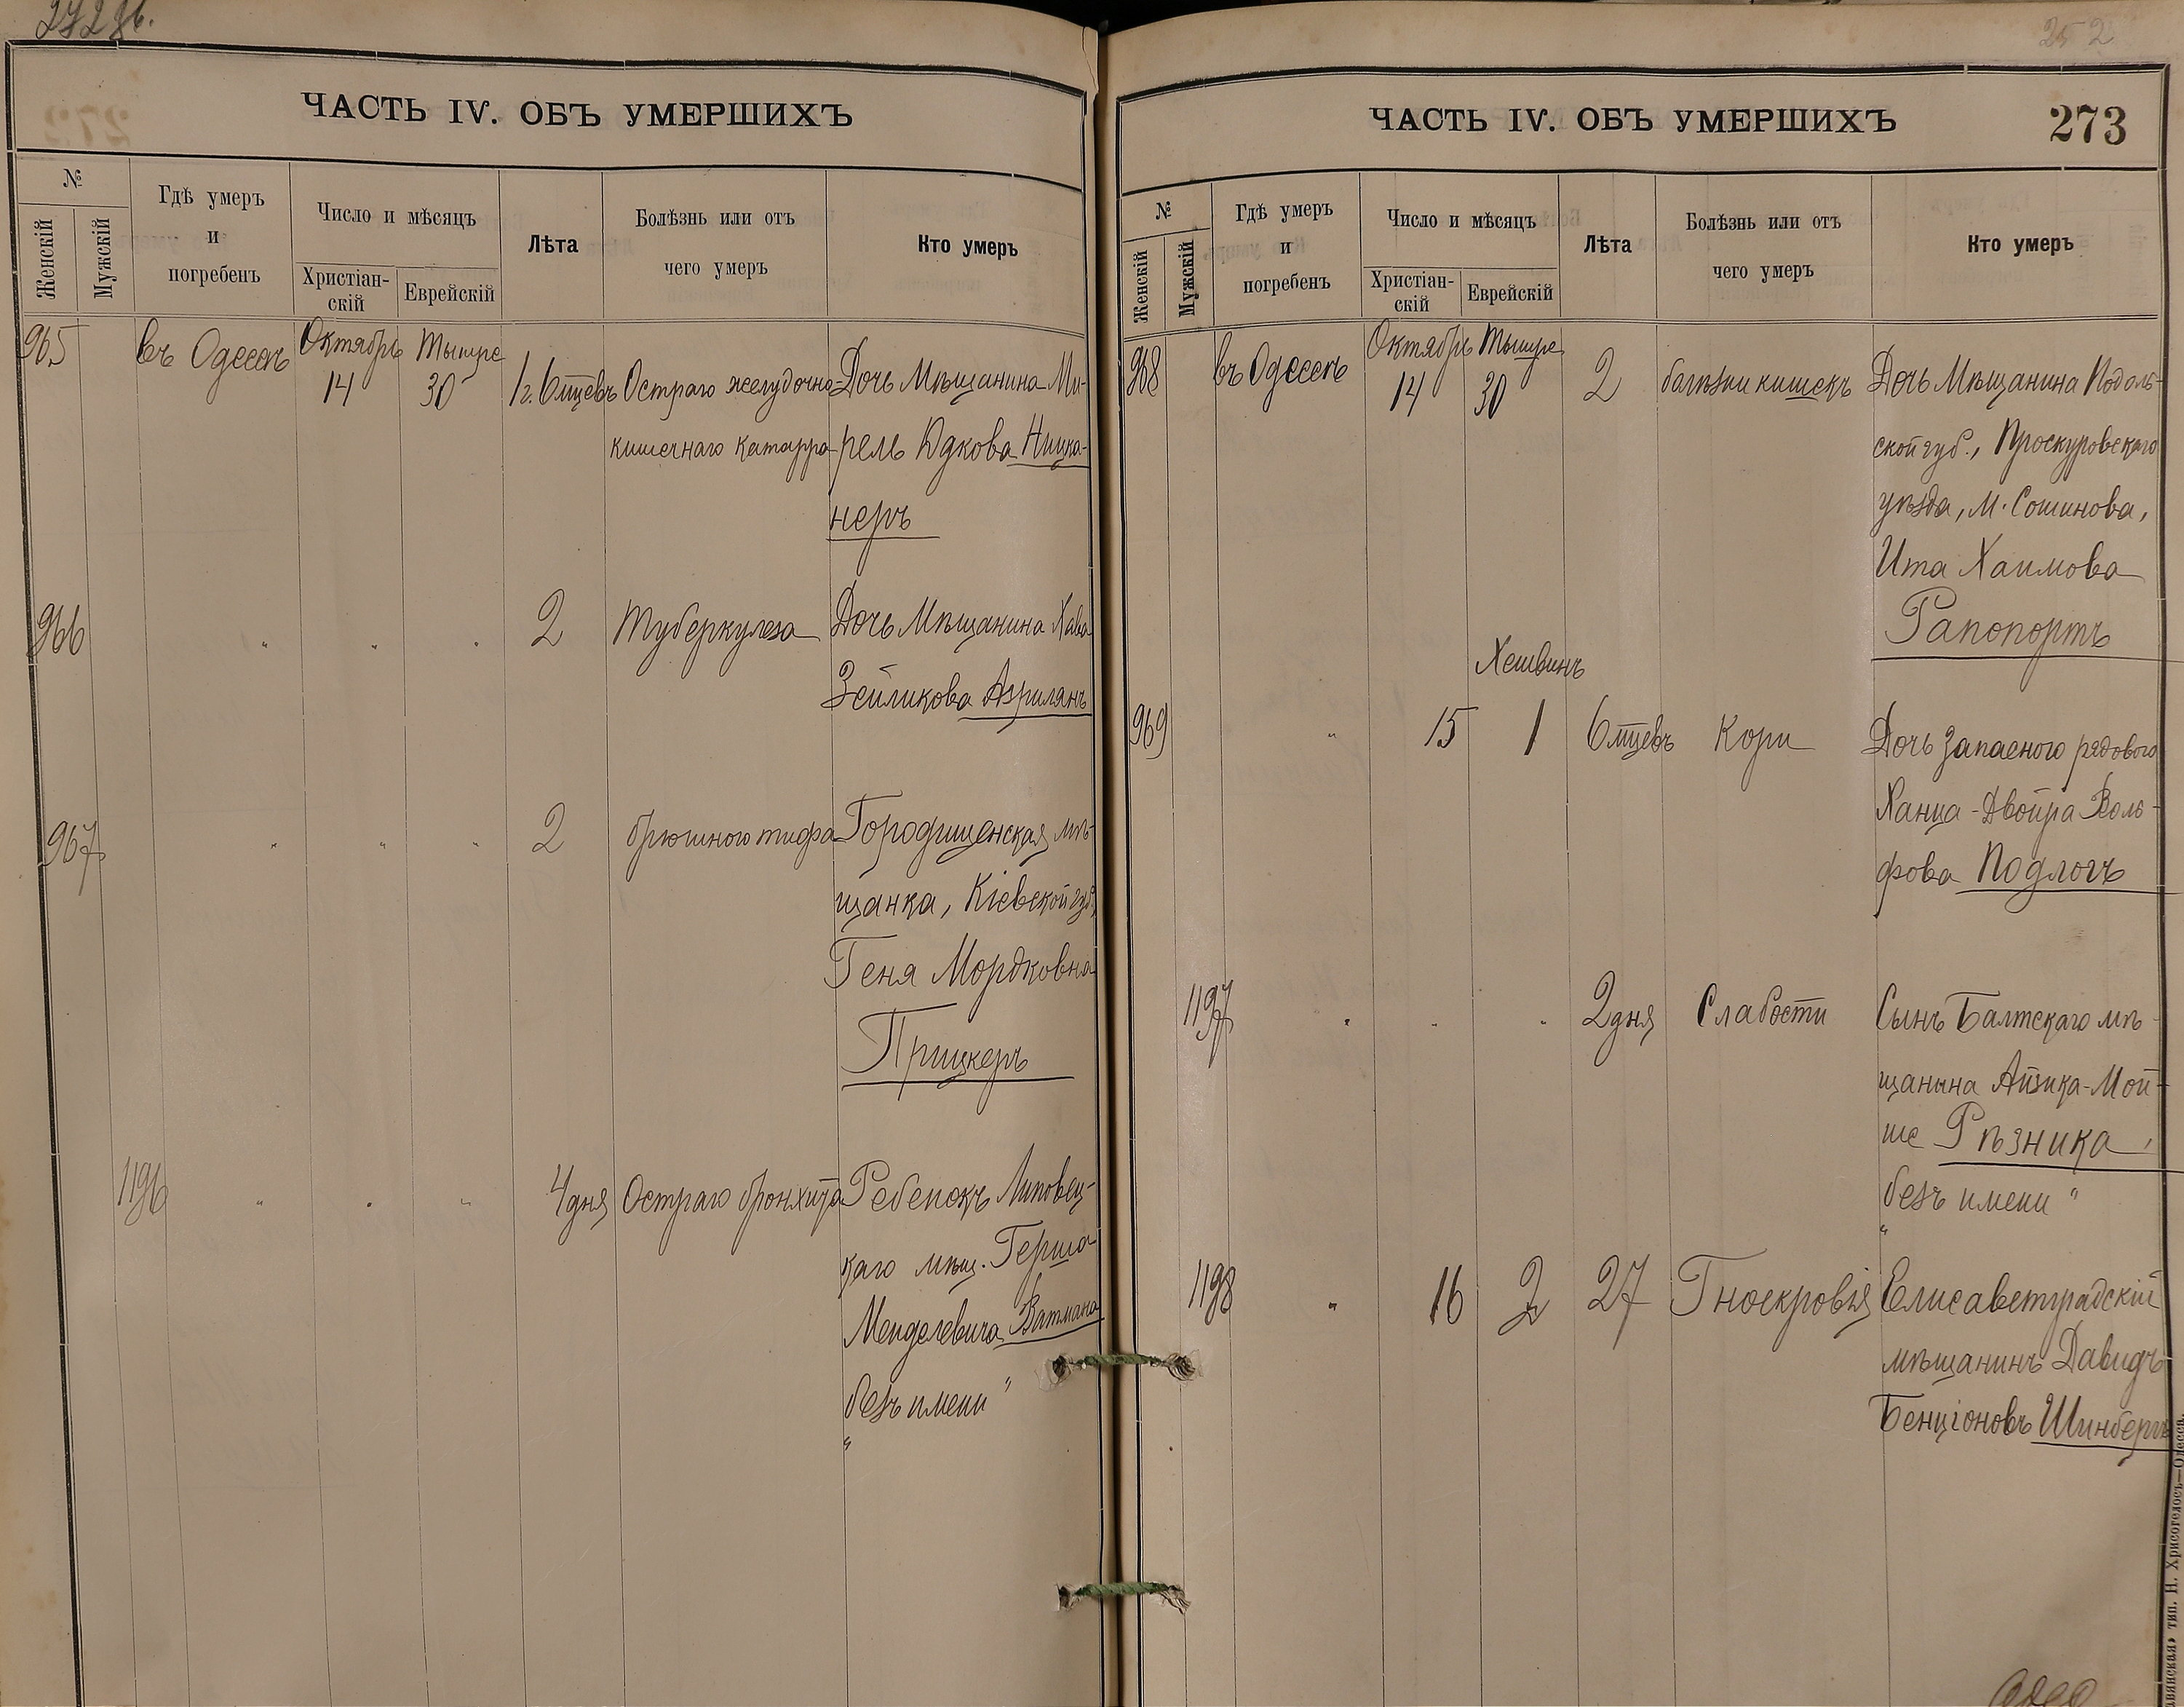 272 об.
ЧАСТЬ IV. ОБЪ УМЕРШИХЪ
№
Женскій
Мужскій
Гдѣ умеръ
и
погребенъ
Число и мѣсяцъ
Христіан-
скій
Еврейскій
Лѣта
Болѣзнь или отъ
чего умеръ
Кто умеръ
965 въ Одессѣ Октябрь 14 Тышре 30 1 г. 6 мцевъ Остраго желудочно- Дочь Мѣщанина Ми-
кишечнаго катарра рель Юдкова Ницка-
неръ
966 " " " 2 Туберкулеза Дочь Мѣщанина Хава
Зейликова Азрилянъ
967 " " " 2 брюшного тифа Городищенская мѣ-
щанка, Кіевской губ.,
Геня Мордковна
Прицкеръ
1196 " " " 4 дня Остраго бронхита Ребенокъ Липовец-
каго мѣщ. Герша
Менделевича Ватмана
"безъ имени"
252
ЧАСТЬ IV. ОБЪ УМЕРШИХЪ
273
№
Женскій
Мужскій
Гдѣ умеръ
и
погребенъ
Число и мѣсяцъ
Христіан-
скій
Еврейскій
Лѣта
Болѣзнь или отъ
чего умеръ
Кто умеръ
968 въ Одессѣ Октябрь 14 Тышре 30 2 болѣзни кишекъ Дочь Мѣщанина Подоль-
ской губ., Проскуровскаго
уѣзда, М. Сошинова,
Ита Хаимова
Рапопортъ
Хешвинъ
969 " 15 1 6 мцевъ Кори Дочь запасного рядового
Ханца-Двойра Воль-
фова Подлогъ
1197 " " " 2 дня Слабости Сынъ Балтскаго мѣ-
щанина Айзика-Мой-
ше Рѣзника,
"безъ имени"
1198 " 16 2 27 Гноекровія Елисаветградскій
мѣщанинъ Давидъ
Бенціоновъ Шинбергъ
тип. Н. Хрисогелосъ—Одесса.